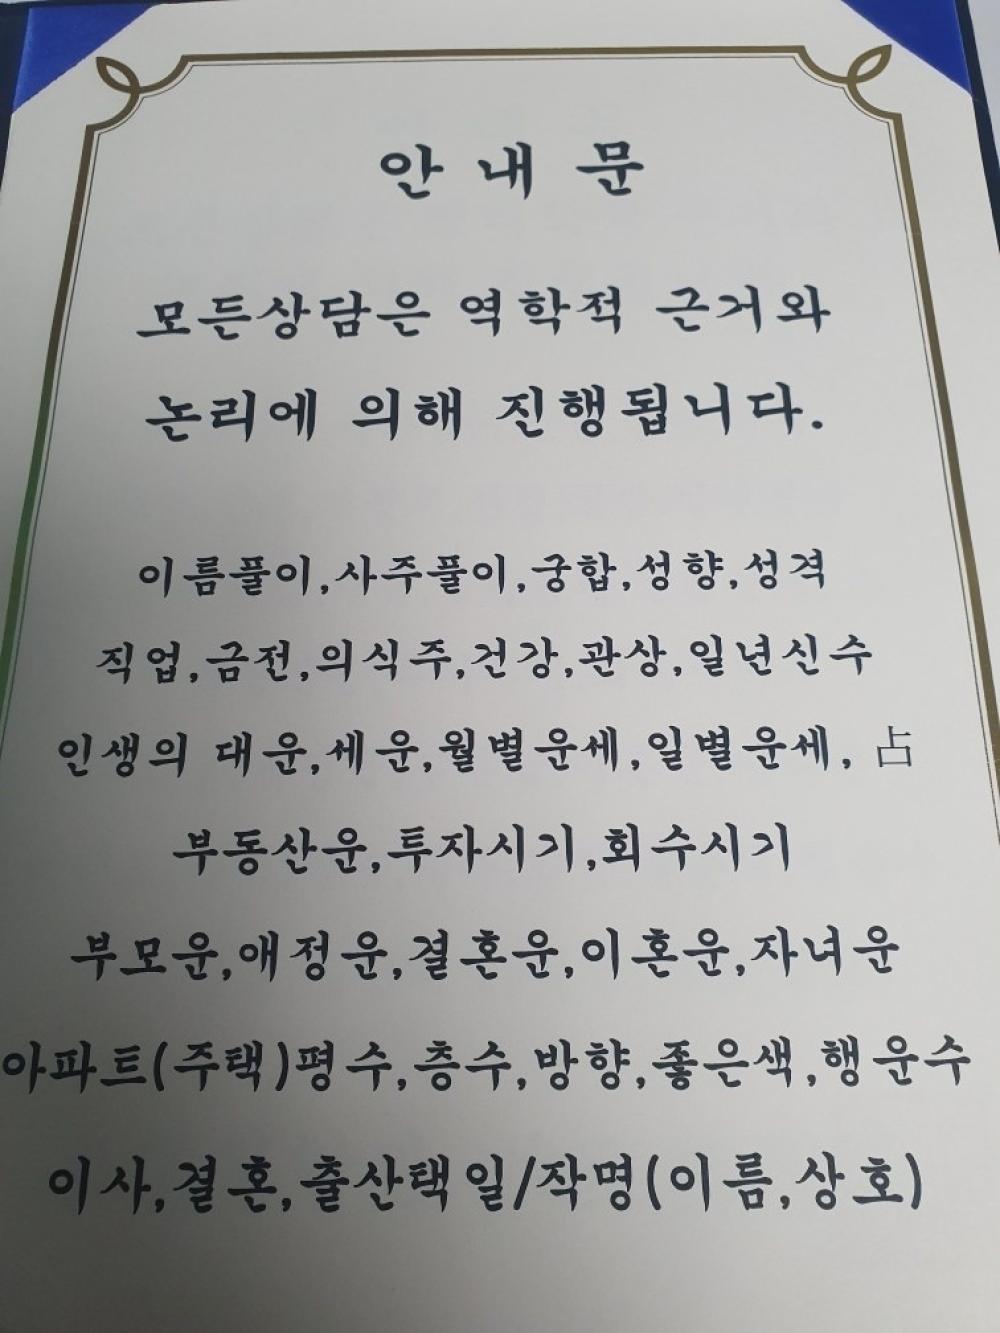 안 내 문
모든상담은 역학적 근거와
논리에 의해 진행됩니다.
이름풀이,사주풀이,궁합,성향,성격
직업,금전,의식주,건강,관상,일년신수
인생의 대운,세운,월별운세,일별운세, 占
부동산운,투자시기,회수시기
부모운,애정운,결혼운,이혼운,자녀운
아파트(주택)평수,층수,방향,좋은색,행운수
이사,결혼,출산택일/작명(이름,상호)